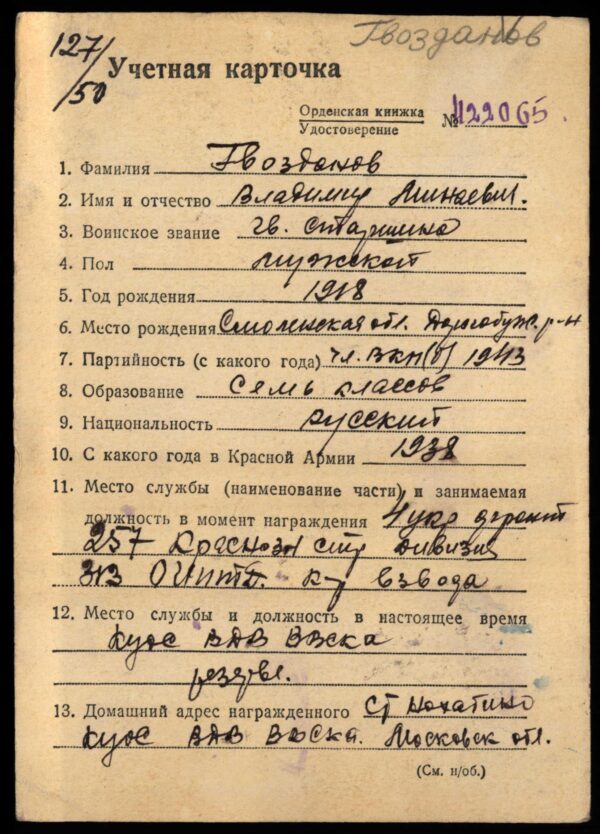 Гвозданов
127/50
Учетная карточка
Орденская книжка
Удостоверение
№ 422065
1. Фамилия Гвозданов
2. Имя и отчество Владимир Минаевич.
3. Воинское звание гв. старшина
4. Пол мужской
5. Год рождения 1918
6. Место рождения Смоленская обл. Дорогобуж. р-н
7. Партийность (с какого года) чл. ВКП(б) 1943
8. Образование Семь классов
9. Национальность русский
10. С какого года в Красной Армии 1938
11. Место службы (наименование части) и занимаемая
должность в момент награждения 4 укр фронт
257 Краснозн стр дивизия
313 к-р взвода
12. Место службы и должность в настоящее время
КУОС ВДВ
резерв.
13. Домашний адрес награжденного ст
КУОС ВДВ Московск обл.
(См. н/об.)